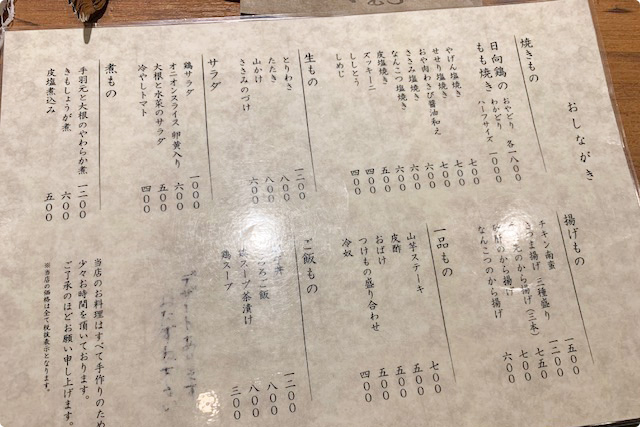 おしながき
焼きもの
日向鶏の
もも焼き
おやどり
わかどり
各一八〇〇
ハーフサイズ 一〇〇〇
やげん塩焼き 七〇〇
せせり塩焼き 七〇〇
おや肉わさび醤油和え 七〇〇
ささみ塩焼き 六〇〇
なんこつ塩焼き 六〇〇
皮塩焼き 五〇〇
ズッキーニ 五〇〇
ししとう 四〇〇
しめじ 四〇〇
生もの
とりわさ 一二〇〇
たたき 八〇〇
山かけ 八〇〇
ささみのづけ 六〇〇
サラダ
鶏サラダ 一〇〇〇
オニオンスライス 卵黄入り 六〇〇
大根と水菜のサラダ 五〇〇
冷やしトマト 四〇〇
煮もの
手羽元と大根のやわらか煮 一二〇〇
きもしょうが煮 六〇〇
皮塩煮込み 五〇〇
揚げもの
チキン南蛮 一五〇〇
さつま揚げ 三種盛り 一二〇〇
のから揚げ(三本) 七五〇
のから揚げ 七〇〇
なんこつのから揚げ 六〇〇
一品もの
山芋ステーキ 七〇〇
皮酢 五〇〇
おばけ 五〇〇
つけもの盛り合わせ 四〇〇
冷奴 四〇〇
ご飯もの
丼 一二〇〇
ろご飯 八〇〇
鶏スープ茶漬け 八〇〇
鶏スープ 三〇〇
当店のお料理はすべて手作りのため
少々お時間を頂いております。
ご了承のほどお願い申し上げます。
※当店の価格は全て税抜表示となります。